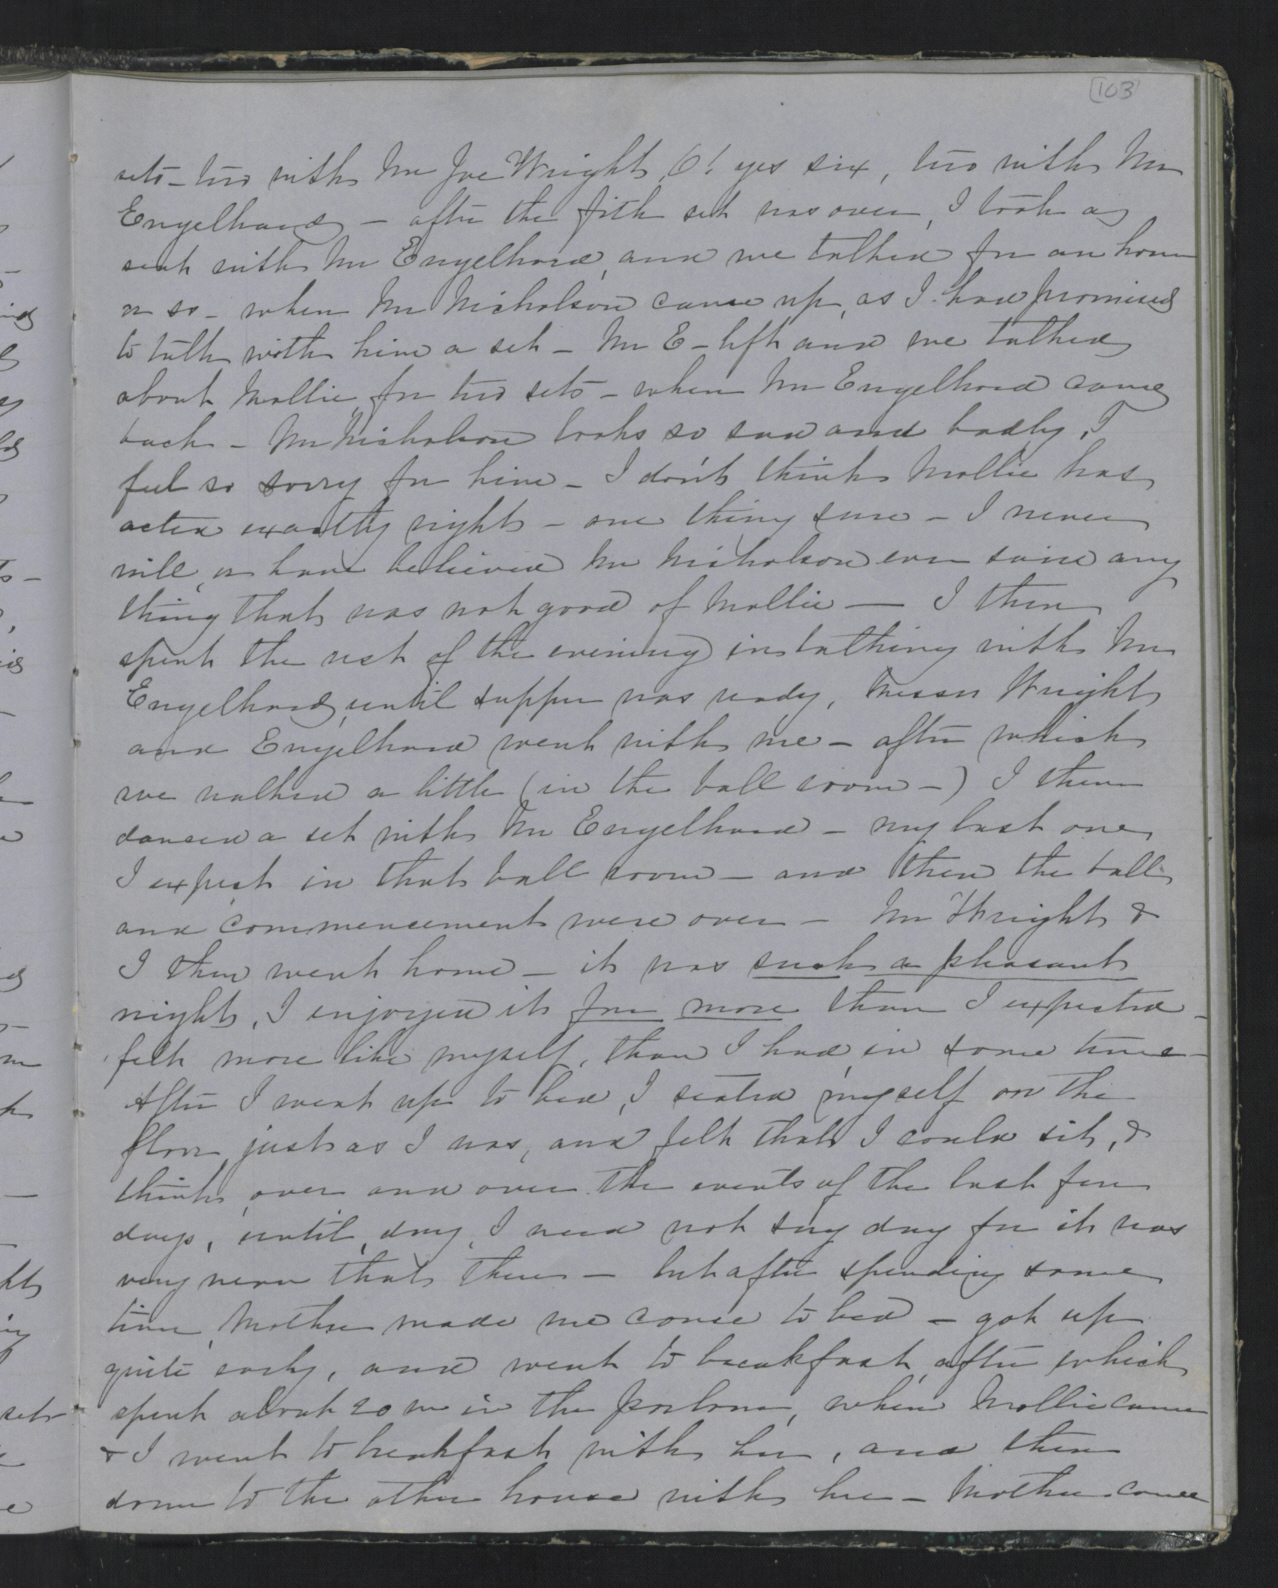 103
sets - two with Mr Joe Wright, O! yes six, two with Mr
Engelhard - after the fith set was over, I took a
seat with Mr Engelhard, and we talked for an hour
or so - when Mr Nicholson came up, as I had promised
to talk with him a set - Mr E - left and we talked
about Mollie, for two sets - when Mr Engelhard came
back - Mr Nicholson looks so sad and badly, I
feel so sorry for him - I don't think Mollie has
acted exactly right - one thing sure - I never
will, or have believed Mr Nicholson ever said any
thing that was not good of Mollie — I then
spent the rest of the evening in talking with Mr
Engelhard, until supper was ready, Messrs Wright
and Engelhard went with me - after which
we walked a little (in the ball room -) I then
danced a set with Mr Engelhard - my last one
I expect in that ball room - and then the ball
and commencement were over - Mr Wright &
I then went home - it was such a pleasant
night, I enjoyed it far more than I expected -
felt more like myself, than I had in some time -
After I went up to bed, I seated myself on the
floor, just as I was, and felt that I could sit, &
think, over and over the events of the last few
days, until, day, I need not say day for it was
very near that then - but after spending some
time, Mother made me come to bed - got up
quite early, and went to breakfast, after which
spent about 20 m in the parlour, when Mollie came
& I went to breakfast with her, and then
down to the other house with her - Mother came